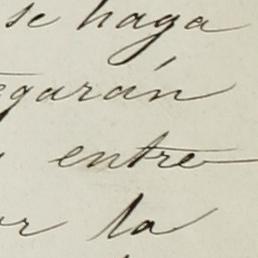 se haga
garán
entre
la